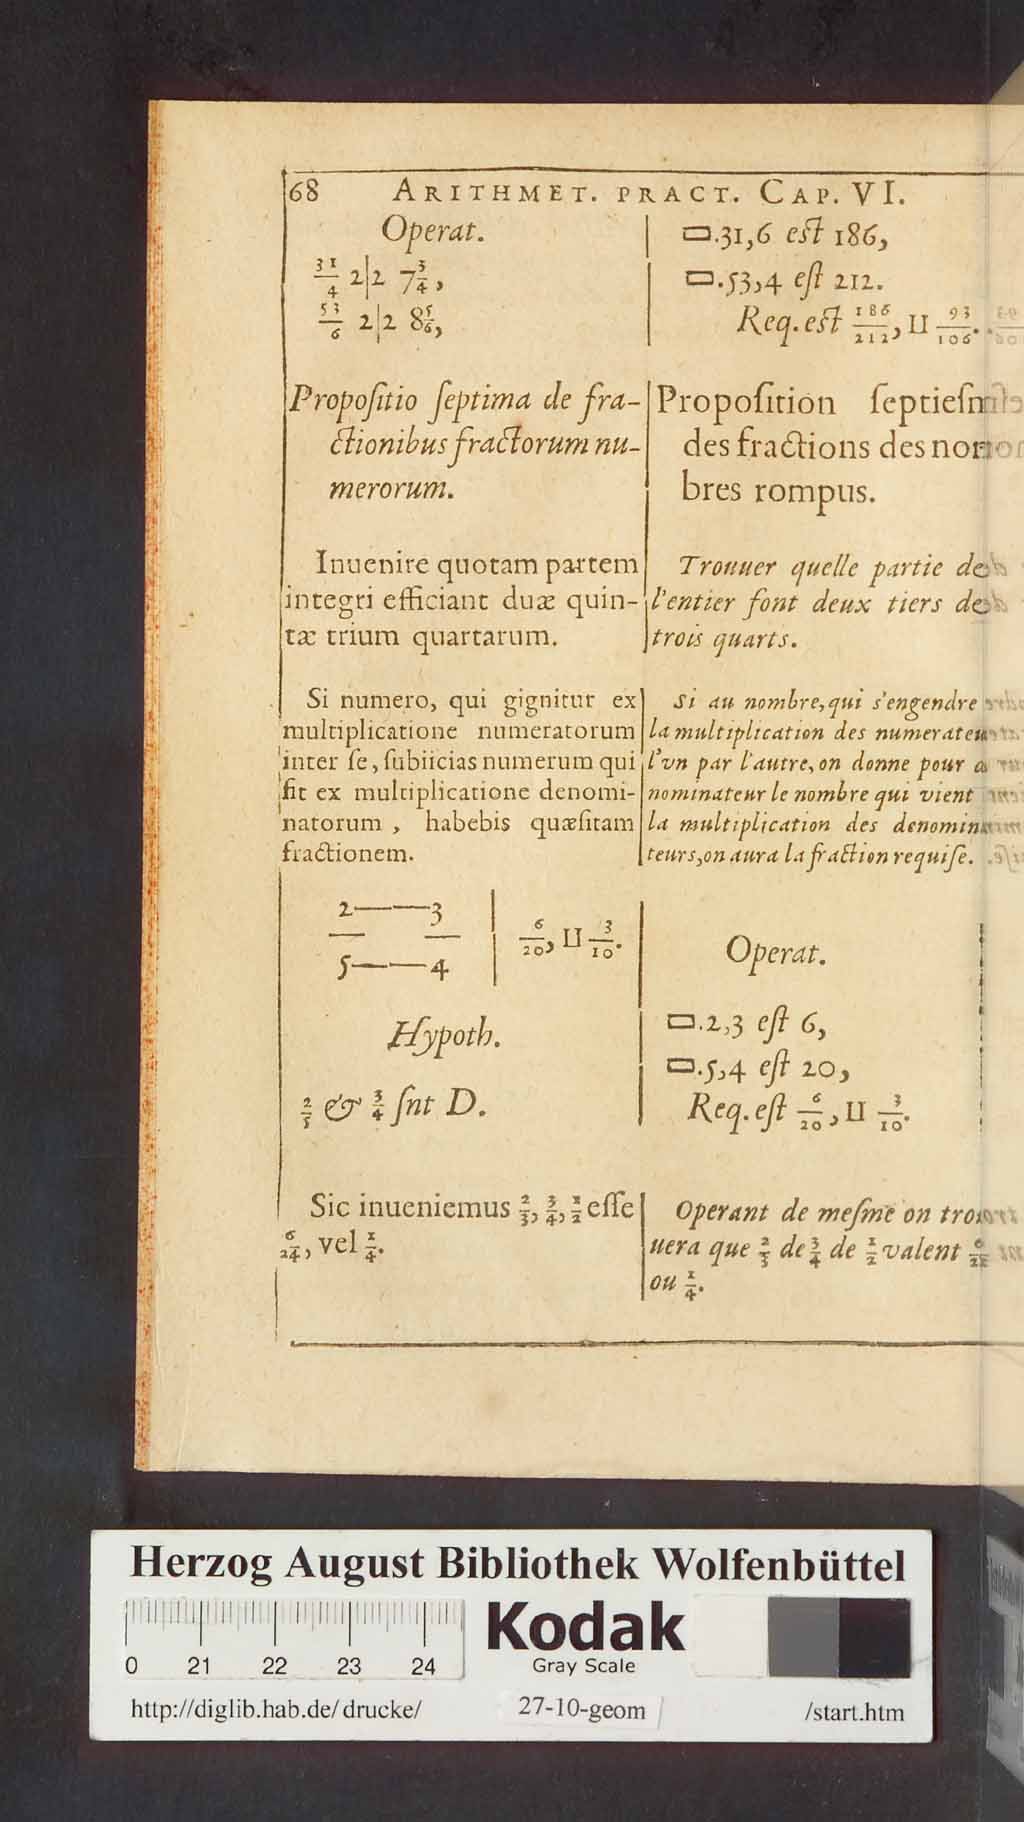 68 ARITHMET. PRACT. CAP. VI.
Operat.
31/4 2|2 7 3/4,
53/6 2|2 8 5/6,
▭.31,6 eſt 186,
▭.53,4 eſt 212.
Req. eſt 186/212, II 93/106.
Propoſitio ſeptima de fra-
ctionibus fractorum nu-
merorum.
Propoſition ſeptieſm
des fractions des nom
bres rompus.
Inuenire quotam partem
integri efficiant duæ quin-
tæ trium quartarum.
Trouuer quelle partie de
l'entier font deux tiers de
trois quarts.
Si numero, qui gignitur ex
multiplicatione numeratorum
inter ſe, ſubiicias numerum qui
fit ex multiplicatione denomi-
natorum, habebis quæſitam
fractionem.
Si au nombre, qui s'engendre
la multiplication des numerateu
l'vn par l'autre, on donne pour
nominateur le nombre qui vient
la multiplication des denomin
teurs, on aura la fraction requiſe.
2——3
— —
5——4
6/20, II 3/10.
Hypoth.
2/5 & 3/4 ſnt D.
Operat.
▭.2,3 eſt 6,
▭.5,4 eſt 20,
Req. eſt 6/20, II 3/10.
Sic inueniemus 2/3, 3/4, 1/2 eſſe
6/24, vel 1/4.
Operant de meſme on trou
uera que 2/3 de 3/4 de 1/2 valent
ou 1/4.
Herzog August Bibliothek Wolfenbüttel
0 21 22 23 24
Kodak
Gray Scale
http://diglib.hab.de/drucke/ 27-10-geom /start.htm